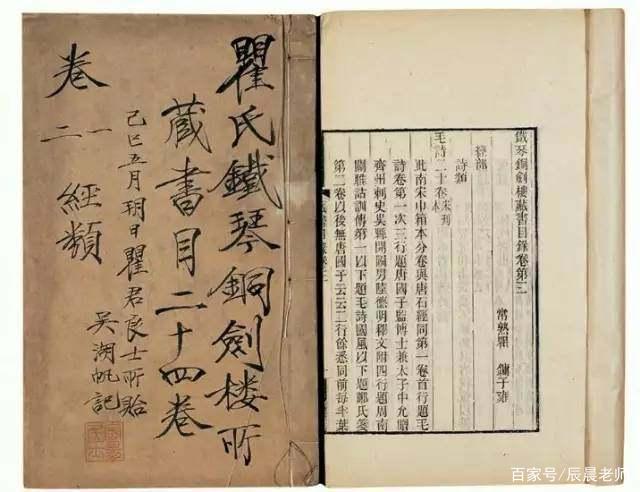 瞿氏鐵琴銅劍楼所
藏書目二十四卷
卷一二 經類
己巳五月朔日瞿君良士所貽
吴湖帆記
鐵琴銅劍樓藏書目錄卷第三
常熟瞿 鏞子雍
經部
詩類
毛詩二十卷宋刊本
此南宋巾箱本分卷與唐石經同第一卷首行題毛
詩卷第一次三行題唐國子監博士兼太子中允贈
齊州刺史吳縣開國男陸德明釋文附四行題周南
關雎詁訓傳第一以下題毛詩國風以下題鄭氏箋
第二卷以後無唐國子云云二行餘悉同前每半葉
百家号/辰晨老师